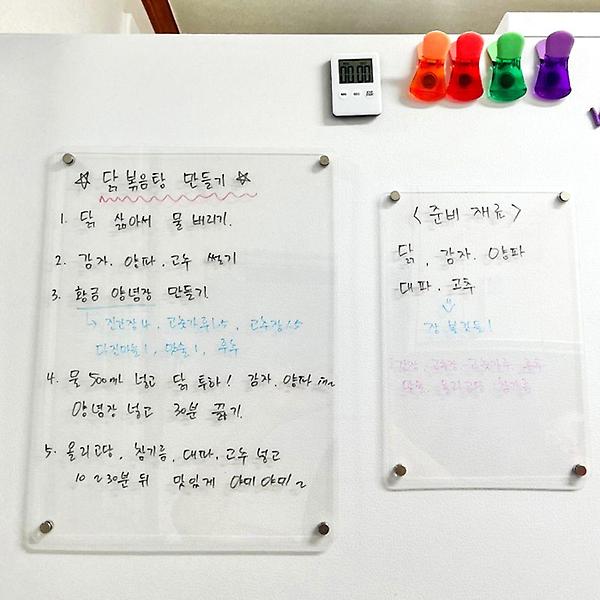 ☆ 닭볶음탕 만들기 ☆
1. 닭 삶아서 물 버리기.
2. 감자. 양파. 고추 썰기
3. 황금 양념장 만들기
↳ 진간장 4, 고춧가루 1.5, 고추장 1.5
다진마늘 1, 맛술 1, 후추
4. 물 500ml 넣고 닭 투하! 감자. 양파
양념장 넣고 30분 끓기.
5. 올리고당, 참기름, 대파, 고추 넣고
10~30분 뒤 맛있게 야미야미~
<준비 재료>
닭, 감자. 양파
대파. 고추
⇩
장 볼것들!
간장. 고추장. 고춧가루 후추
맛술. 올리고당 참기름
00:00